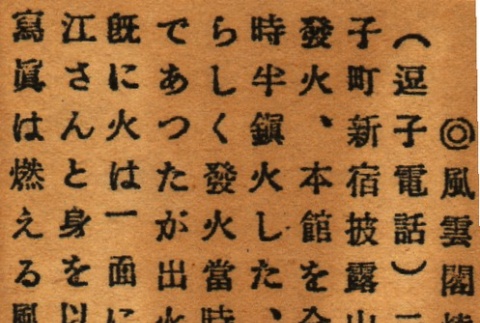 ◎風雲閣
（逗子電話）
子町新宿披露山
發火、本館を
時半鎭火した、
らしく發火當時
であつたが出火
既に火は一面に
江さんと身を以
寫眞は燃える風